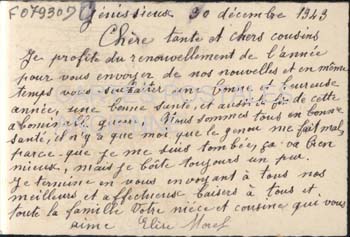 F07930D Génissieux 30 décembre 1943
Chère tante et chers cousins
Je profite du renouvellement de l'année
pour vous envoyer de nos nouvelles et en même
temps vous souhaiter une bonne et heureuse
année, une bonne santé, et aussi la fin de cette
abominable guerre. Nous sommes tous en bonne
santé, il n'y a que moi que le genou me fait mal
parce que je me suis tombée, ça va bien
mieux, mais je boîte toujours un peu.
Je termine en vous envoyant à tous nos
meilleurs et affectueux baisers à tous et
toute la famille Votre nièce et cousine qui vous
aime Elise